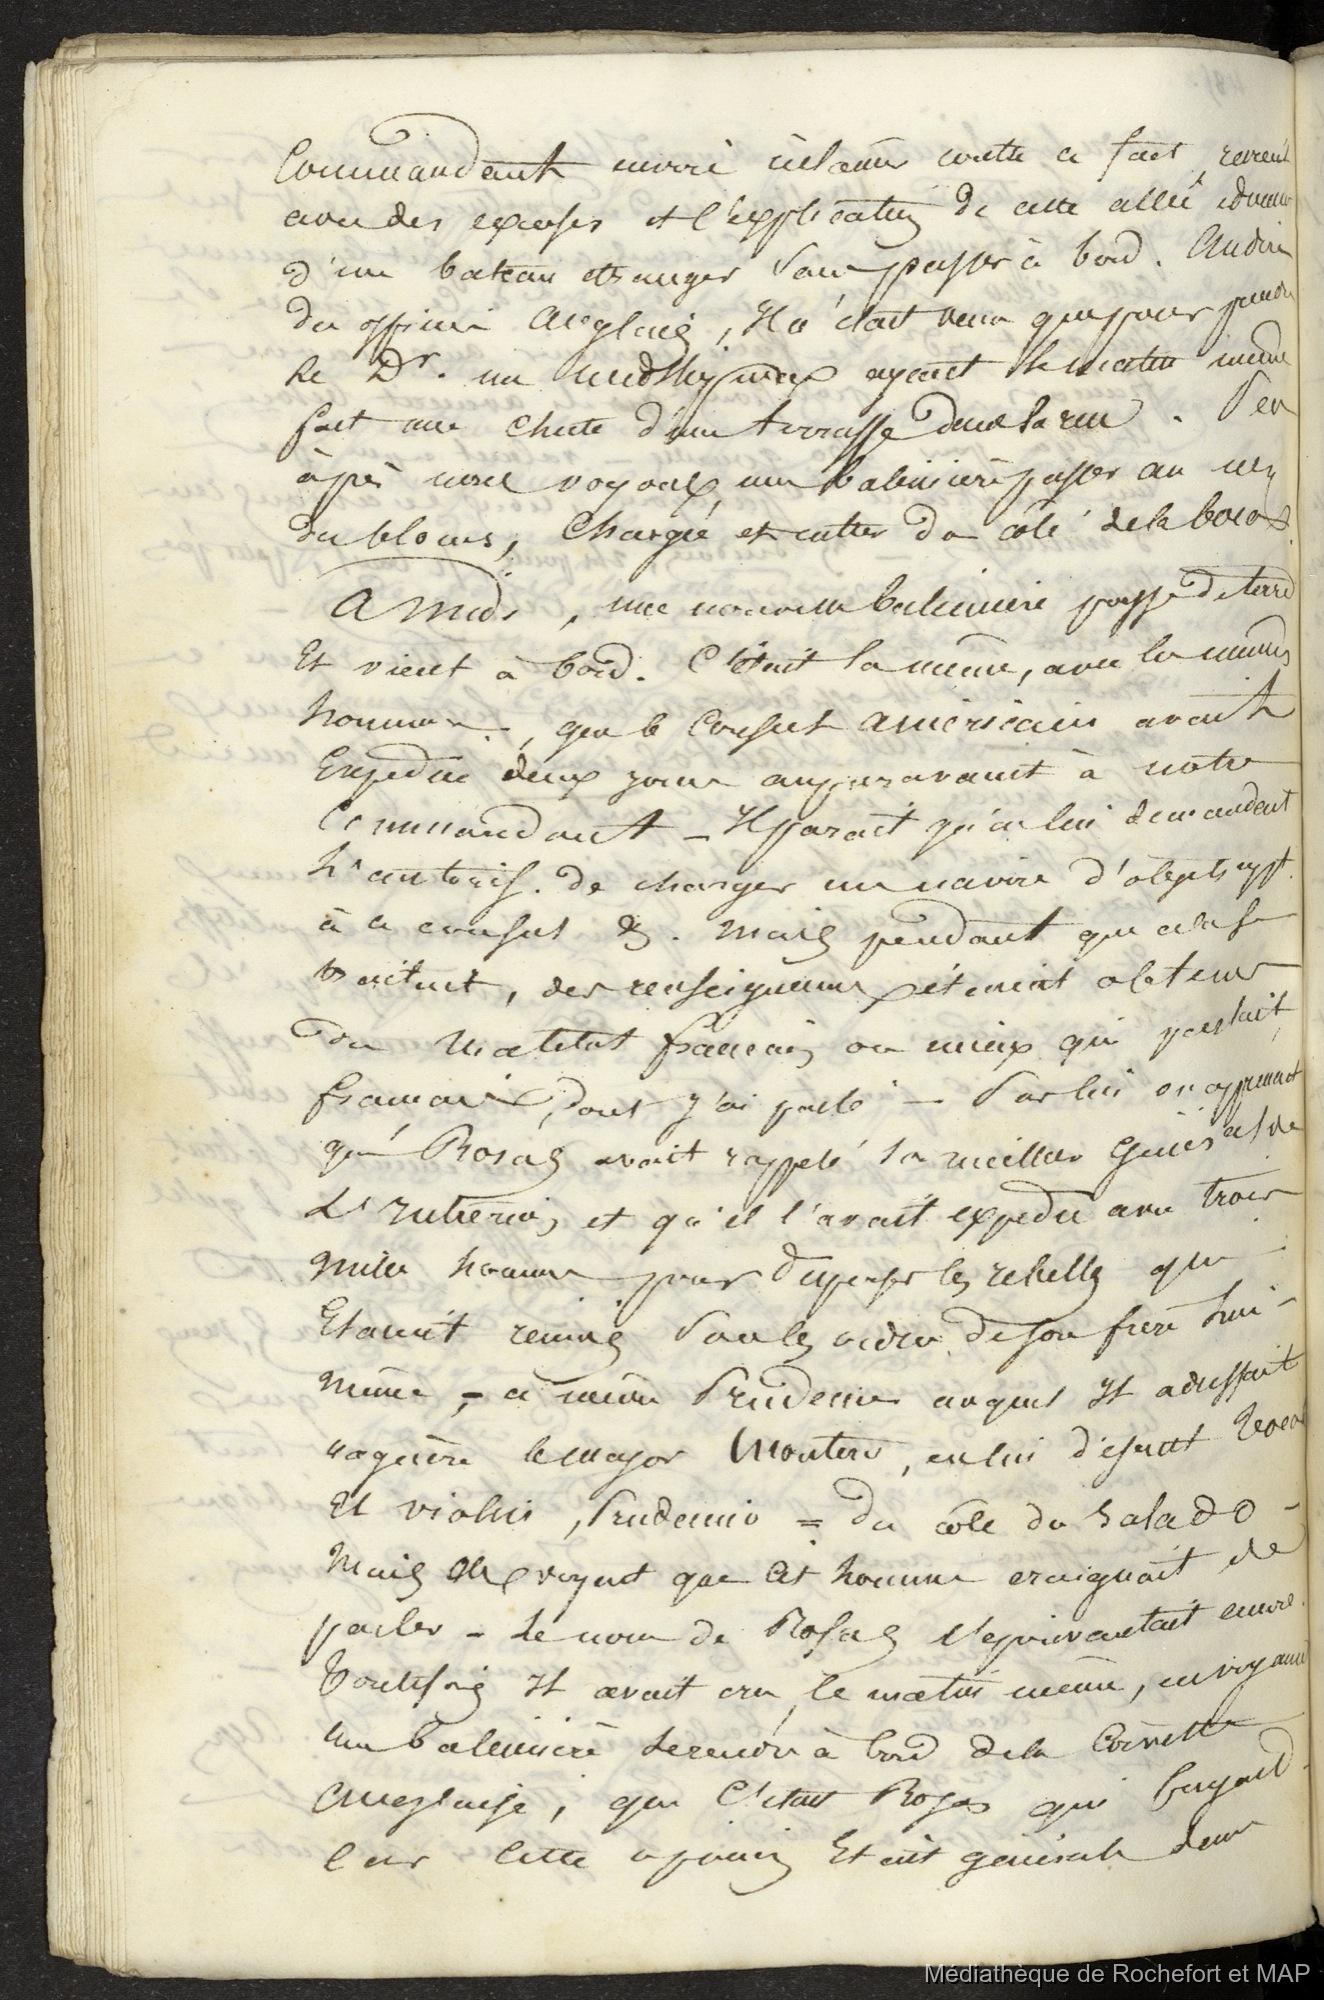 Commandant envoié réclamer contre ce fait, revient
avec des excuses et l'explication de cette allée et venue
d'une bateau étranger sans passer à bord. Au dire
du officier Anglais, Il n'était venu que pour prendre
le Dr. un midshipman ayant le matin même
fait une chute d'une terrasse dans la rue. Peu
après nous voyons une baleinière passer au nez
du blocus, chargée et entrer du côté de la boca.
A midi, une nouvelle baleinière passe de terre
Et vient à bord. C'était la même, avec les mêmes
hommes, que le Consul américain avait
Expédiée deux jours auparavant à notre
Commandant _ Il parait qu'on lui demandait
L'autoris. de charger un navire d'objets appt.
à ce consul &. Mais pendant que cela se
traitait, des renseignemens étaient obtenus
du matelot français ou mieux qui parlait
français, dont j'ai parlé _ Par lui on apprenait
que Rosas avait rappelé son meilleur Général de
L'intérieur, et qu'il l'avait expédié avec trois
mille hommes pour disperser les rebelles qui
Etaient réunis sous les ordres de son frère lui-
même, _ ce même Prudencio auquel Il adressait
naguère le major Montero, en lui disant
Et violin, Prudencio = du côté du Salado _
Mais on voyant que cet homme craignait de
parler _ le nom de Rosas l'épouvantait encore.
Toutefois Il avait cru le matin même, en voyant
une baleinière se rendre à bord de la Corvette
Anglaise, que C'était Rosas qui fuyait
Car Cette opinion Etait générale dans